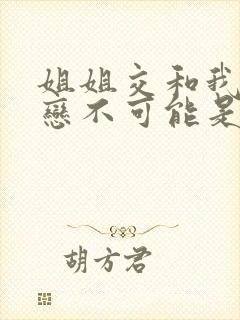 姐姐交和我
戀不可能是
胡方君